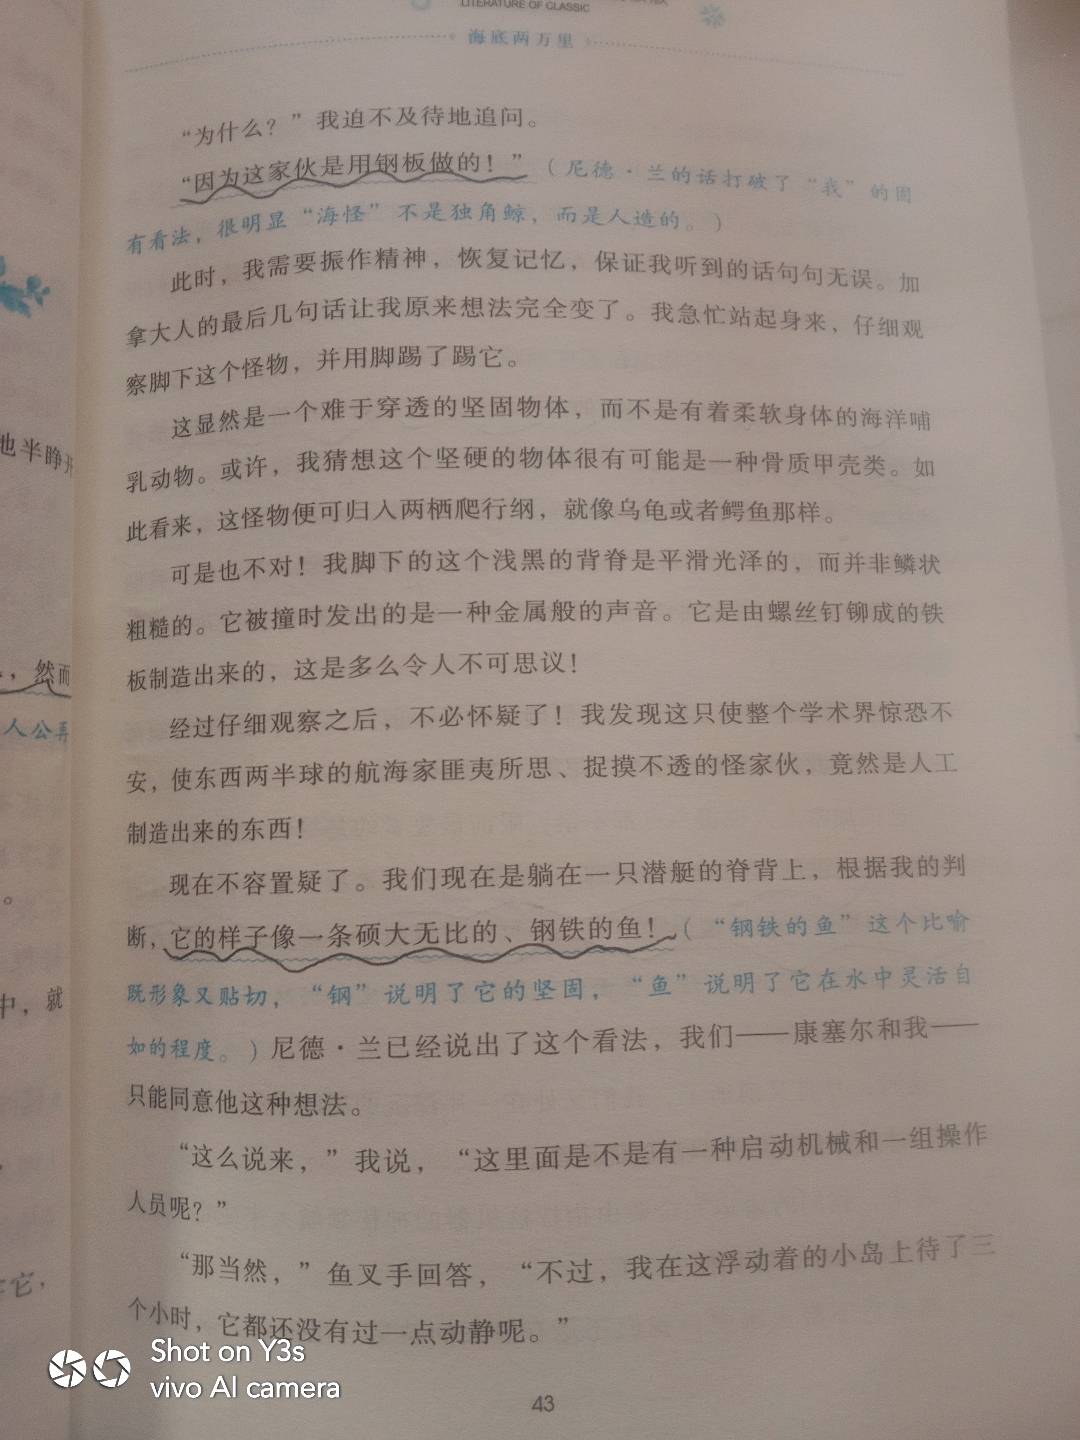 LITERATURE OF CLASSIC
海底两万里
“为什么？”我迫不及待地追问。
“因为这家伙是用钢板做的！”（尼德·兰的话打破了“我”的固
有看法，很明显“海怪”不是独角鲸，而是人造的。）
此时，我需要振作精神，恢复记忆，保证我听到的话句句无误。加
拿大人的最后几句话让我原来想法完全变了。我急忙站起身来，仔细观
察脚下这个怪物，并用脚踢了踢它。
这显然是一个难于穿透的坚固物体，而不是有着柔软身体的海洋哺
乳动物。或许，我猜想这个坚硬的物体很有可能是一种骨质甲壳类。如
此看来，这怪物便可归入两栖爬行纲，就像乌龟或者鳄鱼那样。
可是也不对！我脚下的这个浅黑的背脊是平滑光泽的，而并非鳞状
粗糙的。它被撞时发出的是一种金属般的声音。它是由螺丝钉铆成的铁
板制造出来的，这是多么令人不可思议！
经过仔细观察之后，不必怀疑了！我发现这只使整个学术界惊恐不
安，使东西两半球的航海家匪夷所思、捉摸不透的怪家伙，竟然是人工
制造出来的东西！
现在不容置疑了。我们现在是躺在一只潜艇的脊背上，根据我的判
断，它的样子像一条硕大无比的、钢铁的鱼！（“钢铁的鱼”这个比喻
既形象又贴切，“钢”说明了它的坚固，“鱼”说明了它在水中灵活自
如的程度。）尼德·兰已经说出了这个看法，我们——康塞尔和我——
只能同意他这种想法。
“这么说来，”我说，“这里面是不是有一种启动机械和一组操作
人员呢？”
“那当然，”鱼叉手回答，“不过，我在这浮动着的小岛上待了三
个小时，它都还没有过一点动静呢。”
43
地半睁开
，然而
人公弄
。
中，就
它，
Shot on Y3s
vivo AI camera